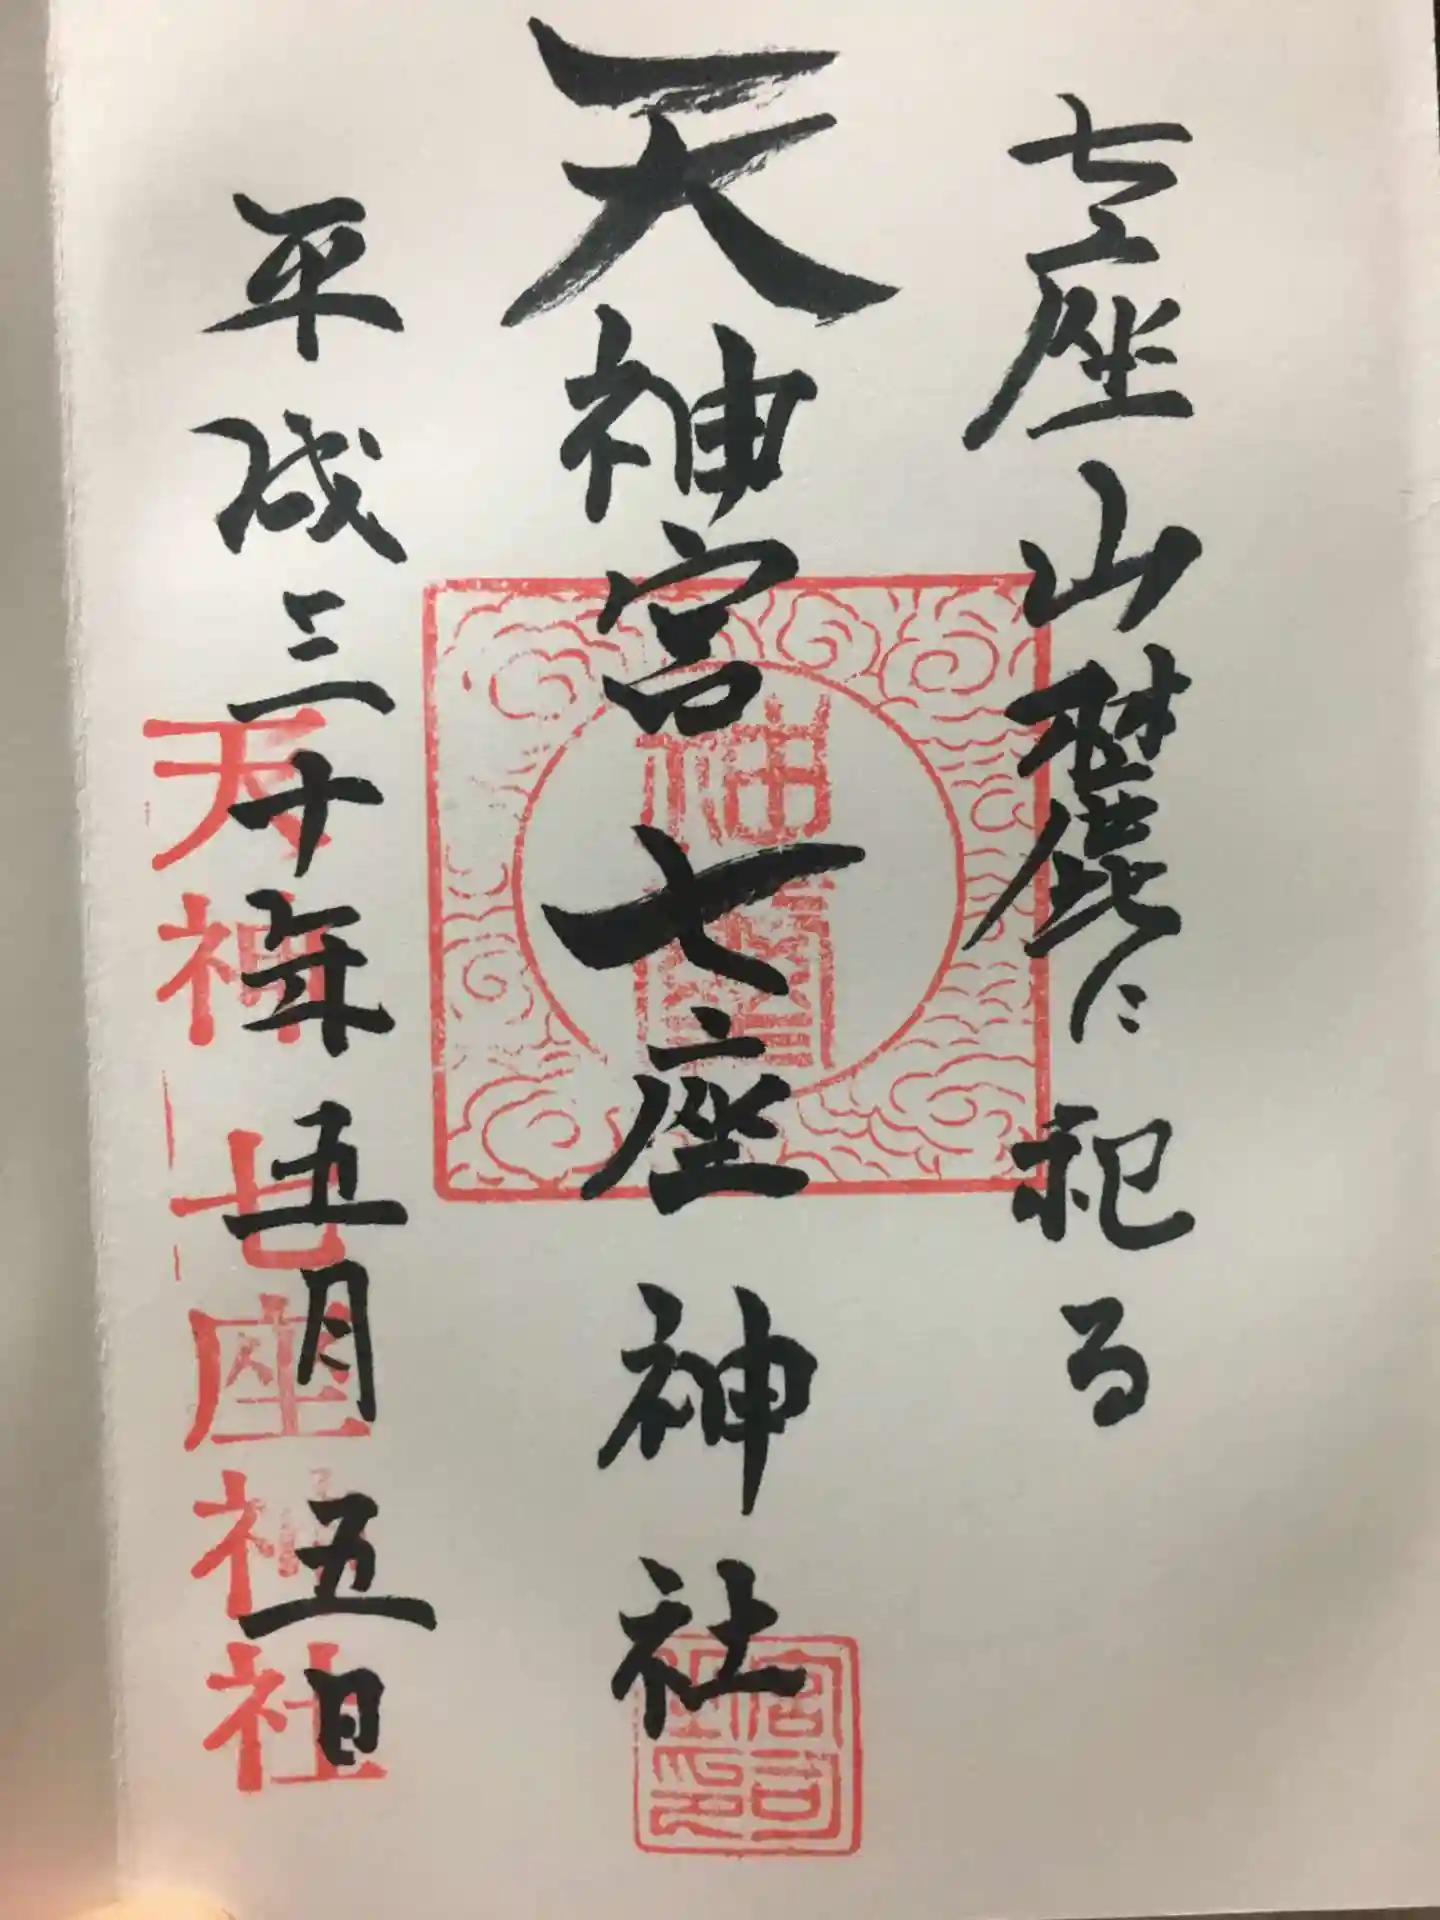 七座山麓に祀る
天神宮七座神社
平成三十年五月五日
天神 七座神社
宮司之印